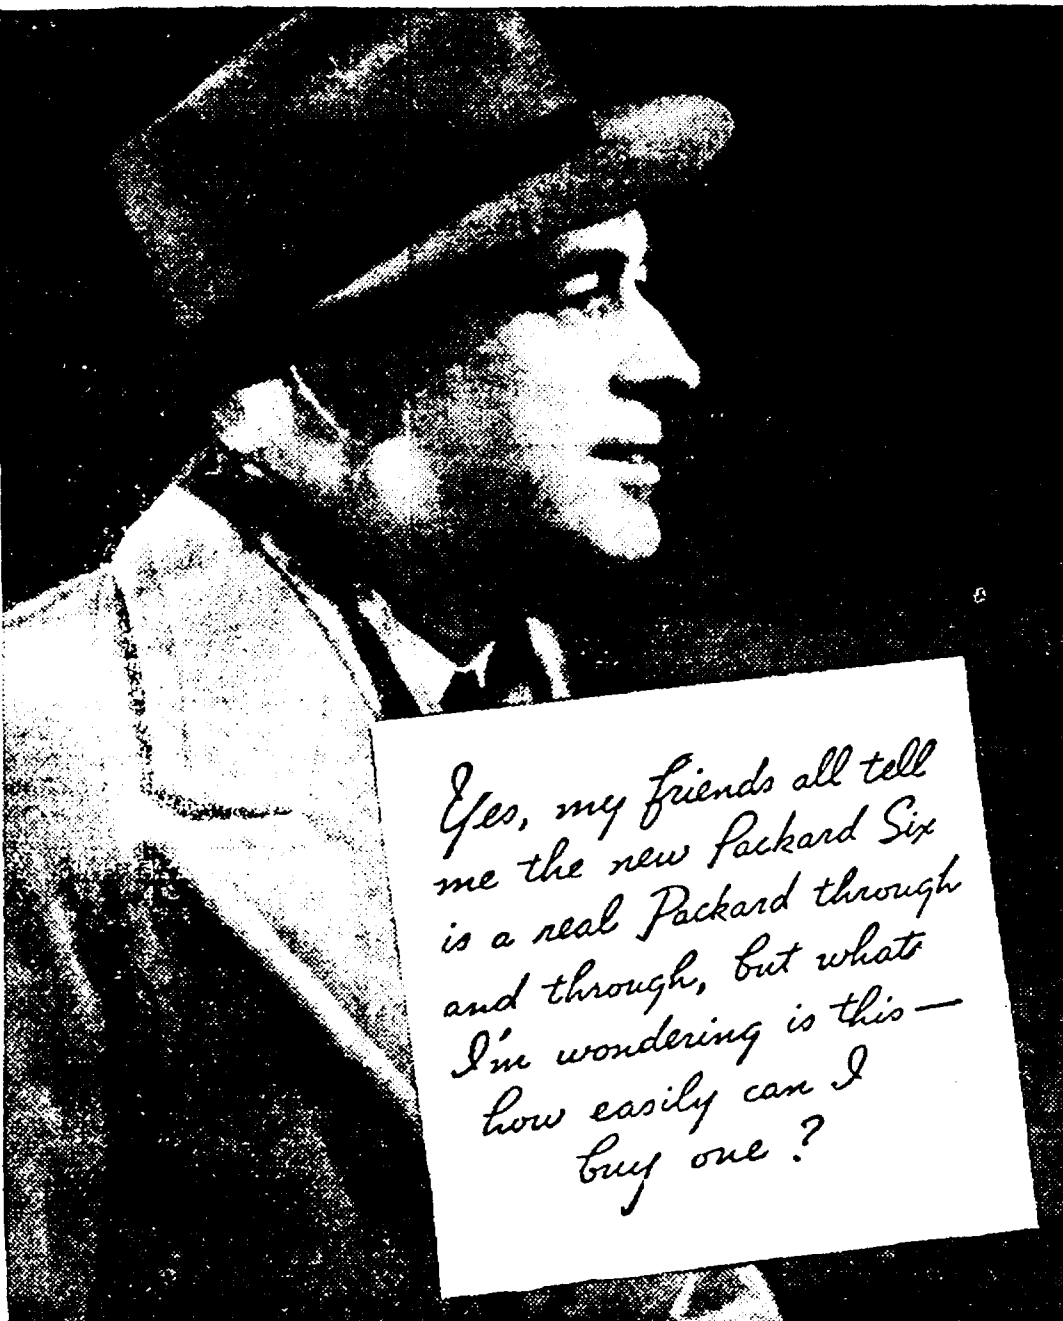 Yes, my friends all tell
me the new Packard Six
is a real Packard through
and through, but what
I'm wondering is this—
how easily can I
buy one?